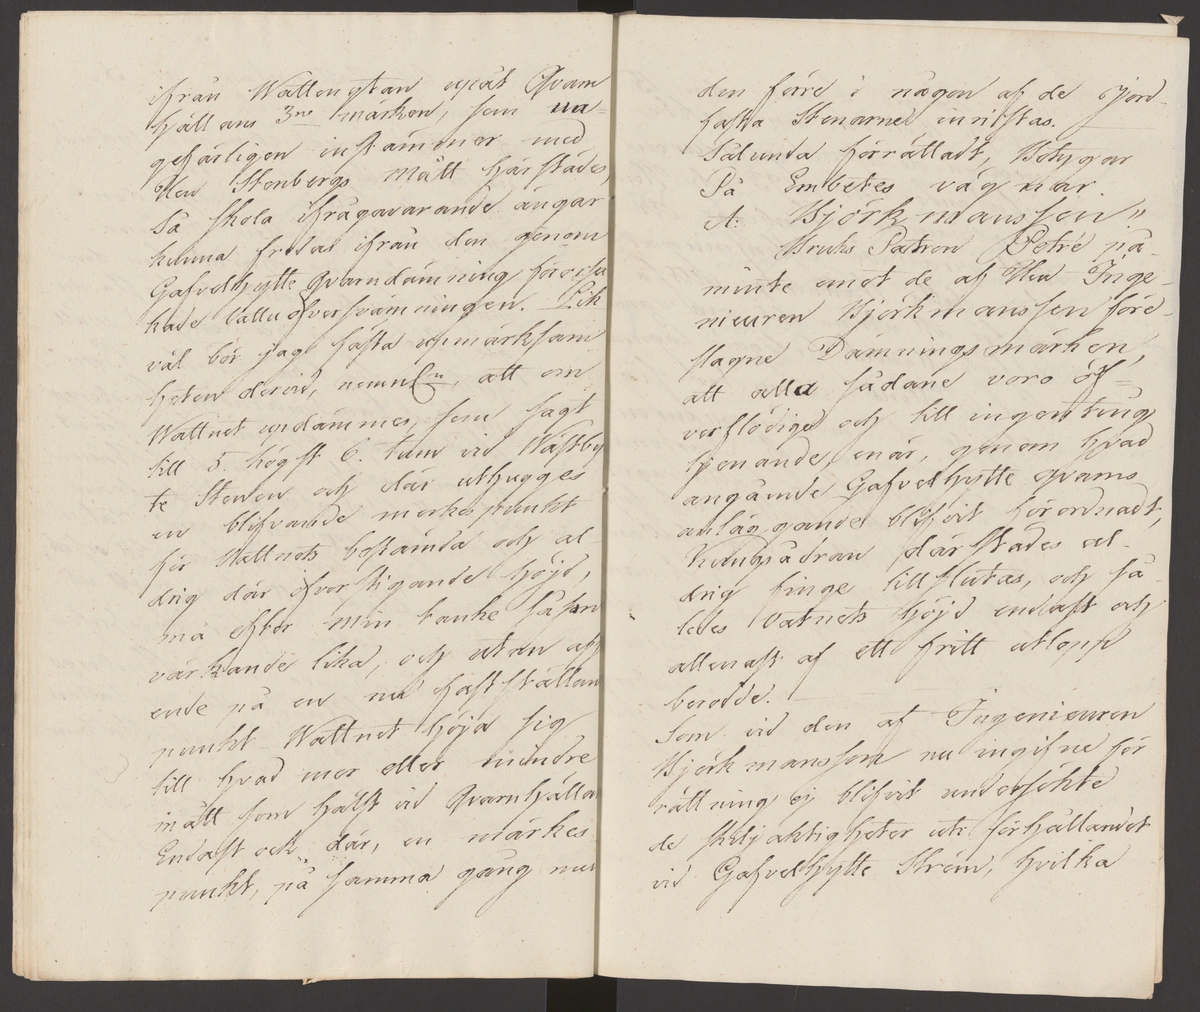 ifrån Wattenytan uppåt Qvarn
hjällans 3ne märken, som un-
gefärligen instämmer med
Herr Stenbergs Mått härstädes,
Så skola ifrågavarande ängar
kunna fredas ifrån den genom
Gafvelhytte Qvarndämning förorsa
kade öfversvämningen. Lik
väl bör jag fästa upmärksam
heten dervid, nemln, att om
Wattnet updämmes, som sagt
till 5. högst 6. tum vid Wästby
te Stenen och där uthugges
en blifvande merkespunkt
för Wattnets bestämda och al
drig där öfverstigande höjd,
må efter min tanke såsom
värkande lika, och utan afse
ende på en nu fastställan
punkt Wattnet höja sig
till hvad mer eller mindre
mått som hälst vid Qvarnhällan
Endast ock där, en märkes
punkt, på samma gång nu
den förre i någon af de Jord-
fasta Stenarne inristas.
Sålunda förrättadt, Betygar
På Embetes vägnar.
A: Björkmansson"
Bruks Patron Petré på-
minte emot de af Herr Inge-
nieuren Björkmansson före-
slagne Damningsmärken,
att alla sådane voro öf-
verflödige och till ingenting
tjenande, enär, genom hvad
angående Gafvelhytte Qvarns
anläggande blifvit förordnadt,
Kungsådran därstädes al-
drig finge tillslutas, och så-
ledes Vatnets höjd endast och
allenast af ett fritt utlopp
berodde.
Som vid den af Ingenieuren
Björkmansson nu ingifne för
rättning ej blifvit undersökte
de skiljaktigheter uti förhållandet
vid Gafvelhytte Ström, hvilka